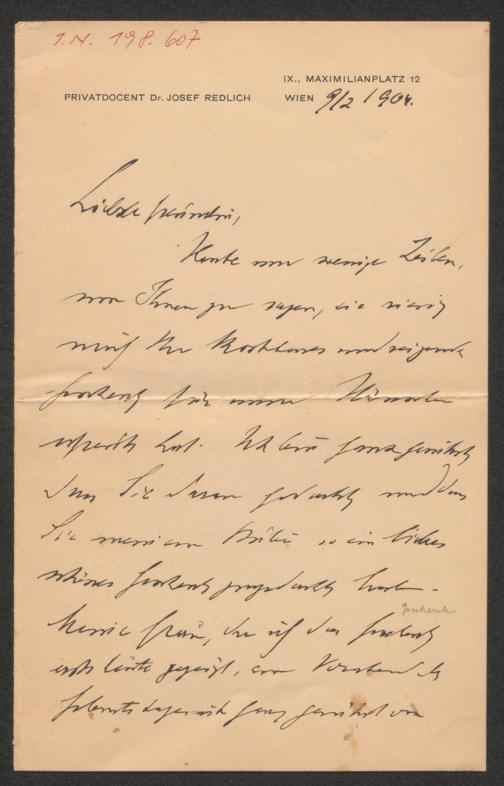 I.N. 198.607
IX., MAXIMILIANPLATZ 12
PRIVATDOCENT Dr. JOSEF REDLICH WIEN 9/2 1904.
Liebste Freundin,
Heute nur wenige Zeilen,
um Ihnen zu sagen, wie
mich Ihr kostbares und reizendes
Geschenk für unsern
erfreut hat. Ich bin ganz gerührt
dass Sie daran gedacht und dass
Sie meinem so ein liebes
schönes Geschenk zugedacht haben.
Geschenk
Meine Frau, der ich das Geschenk
erst heute gezeigt, am Vorabend des
Geburtstages ist ganz gerührt von